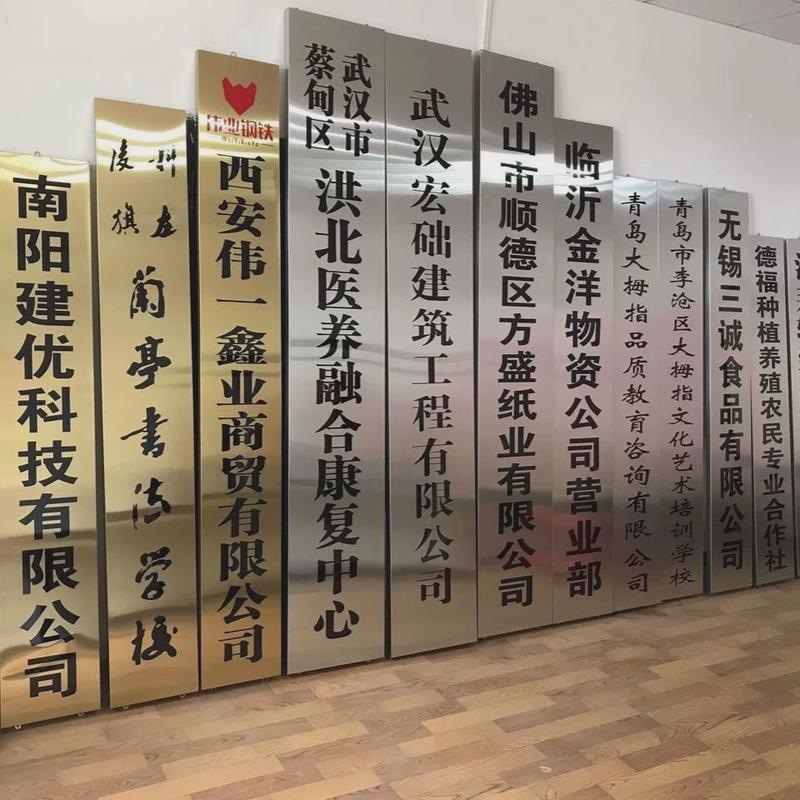 南阳建优科技有限公司
科左
後旗
蘭亭書法学校
伟业钢铁
西安伟一鑫业商贸有限公司
武汉市
蔡甸区
洪北医养融合康复中心
武汉宏础建筑工程有限公司
佛山市顺德区方盛纸业有限公司
临沂金洋物资公司营业部
青岛大拇指品质教育咨询有限公司
青岛市李沧区大拇指文化艺术培训学校
无锡三诚食品有限公司
德福种植养殖农民专业合作社